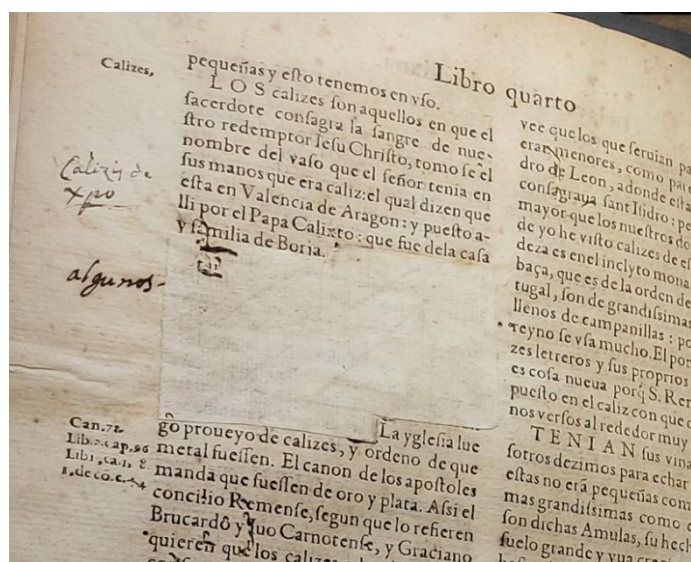 Libro quarto
Calizes,
pequeñas y esto tenemos en vso.
LOS calizes son aquellos en que el
sacerdote consagra la sangre de nue-
stro redemptor Iesu Christo, tomo se el
nombre del vaso que el señor tenia en
sus manos que era caliz: el qual dizen que
esta en Valencia de Aragon: y puesto a-
lli por el Papa Calixto: que fue dela casa
y familia de Borja.
Calizes de
xpo
algunos
La yglesia lue
go proueyo de calizes, y ordeno de que
metal fuessen. El canon de los apostoles
manda que fuessen de oro y plata. Assi el
concilio Remense, segun que lo refieren
Brucardo y Iuo Carnotense, y Graciano
quieren que los calizes
Can.72.
vee que los que seruian pa
eran menores, como par
dro de Leon, adonde esta
consagraua sant Isidro: pe
mayor que los nuestros de
de yo he visto calizes de es
deza es enel inclyto mona
baça, que es de la orden de
tugal, son de grandissimas
llenos de campanillas: po
reyno se vsa mucho. El por
zes letreros y sus proprios
es cosa nueua porq̃ S. Rem
puesto en el caliz con que c
nos versos al rededor muy
TENIAN sus vina
sotros dezimos para echar
estas no erã pequeñas com
mas grandissimas como c
son dichas Amulas, su hech
suelo grande y yua